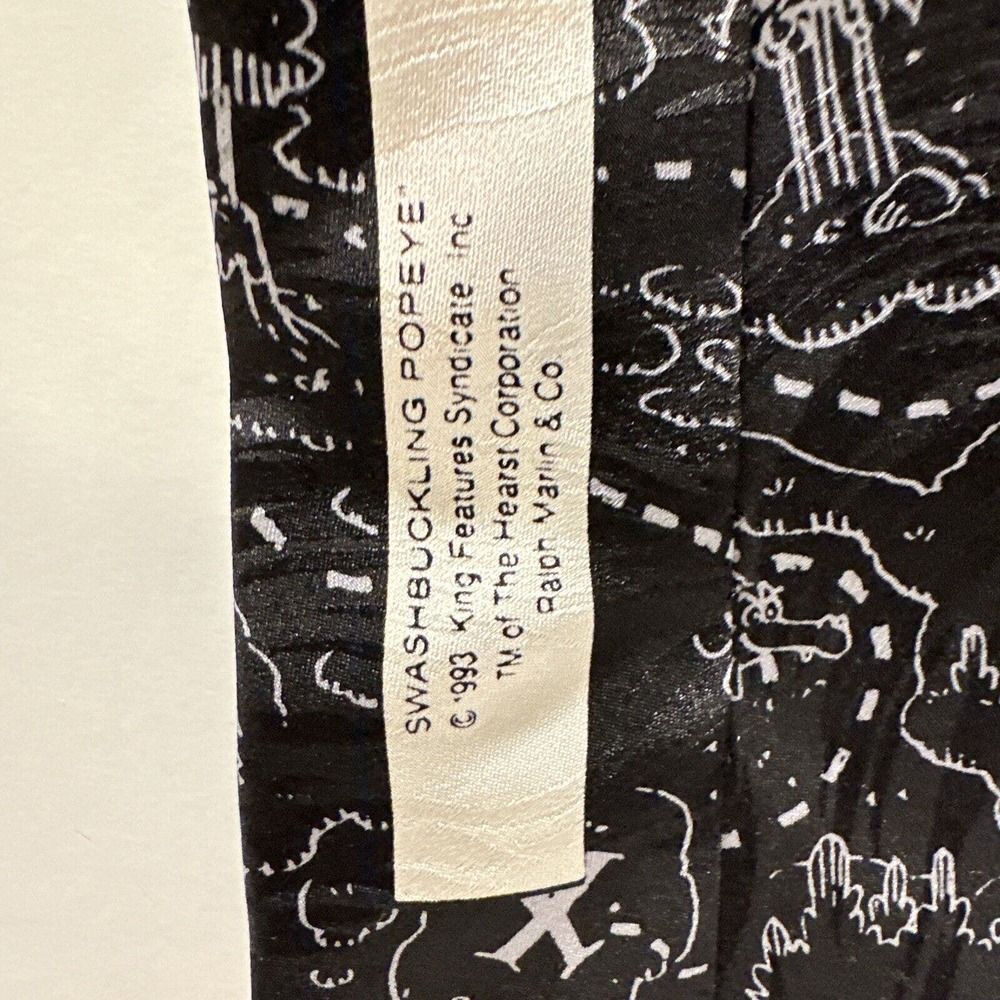 SWASHBUCKLING POPEYE"
© 1993 King Features Syndicate Inc
TM of The Hearst Corporation
Ralph Marlin & Co.
X